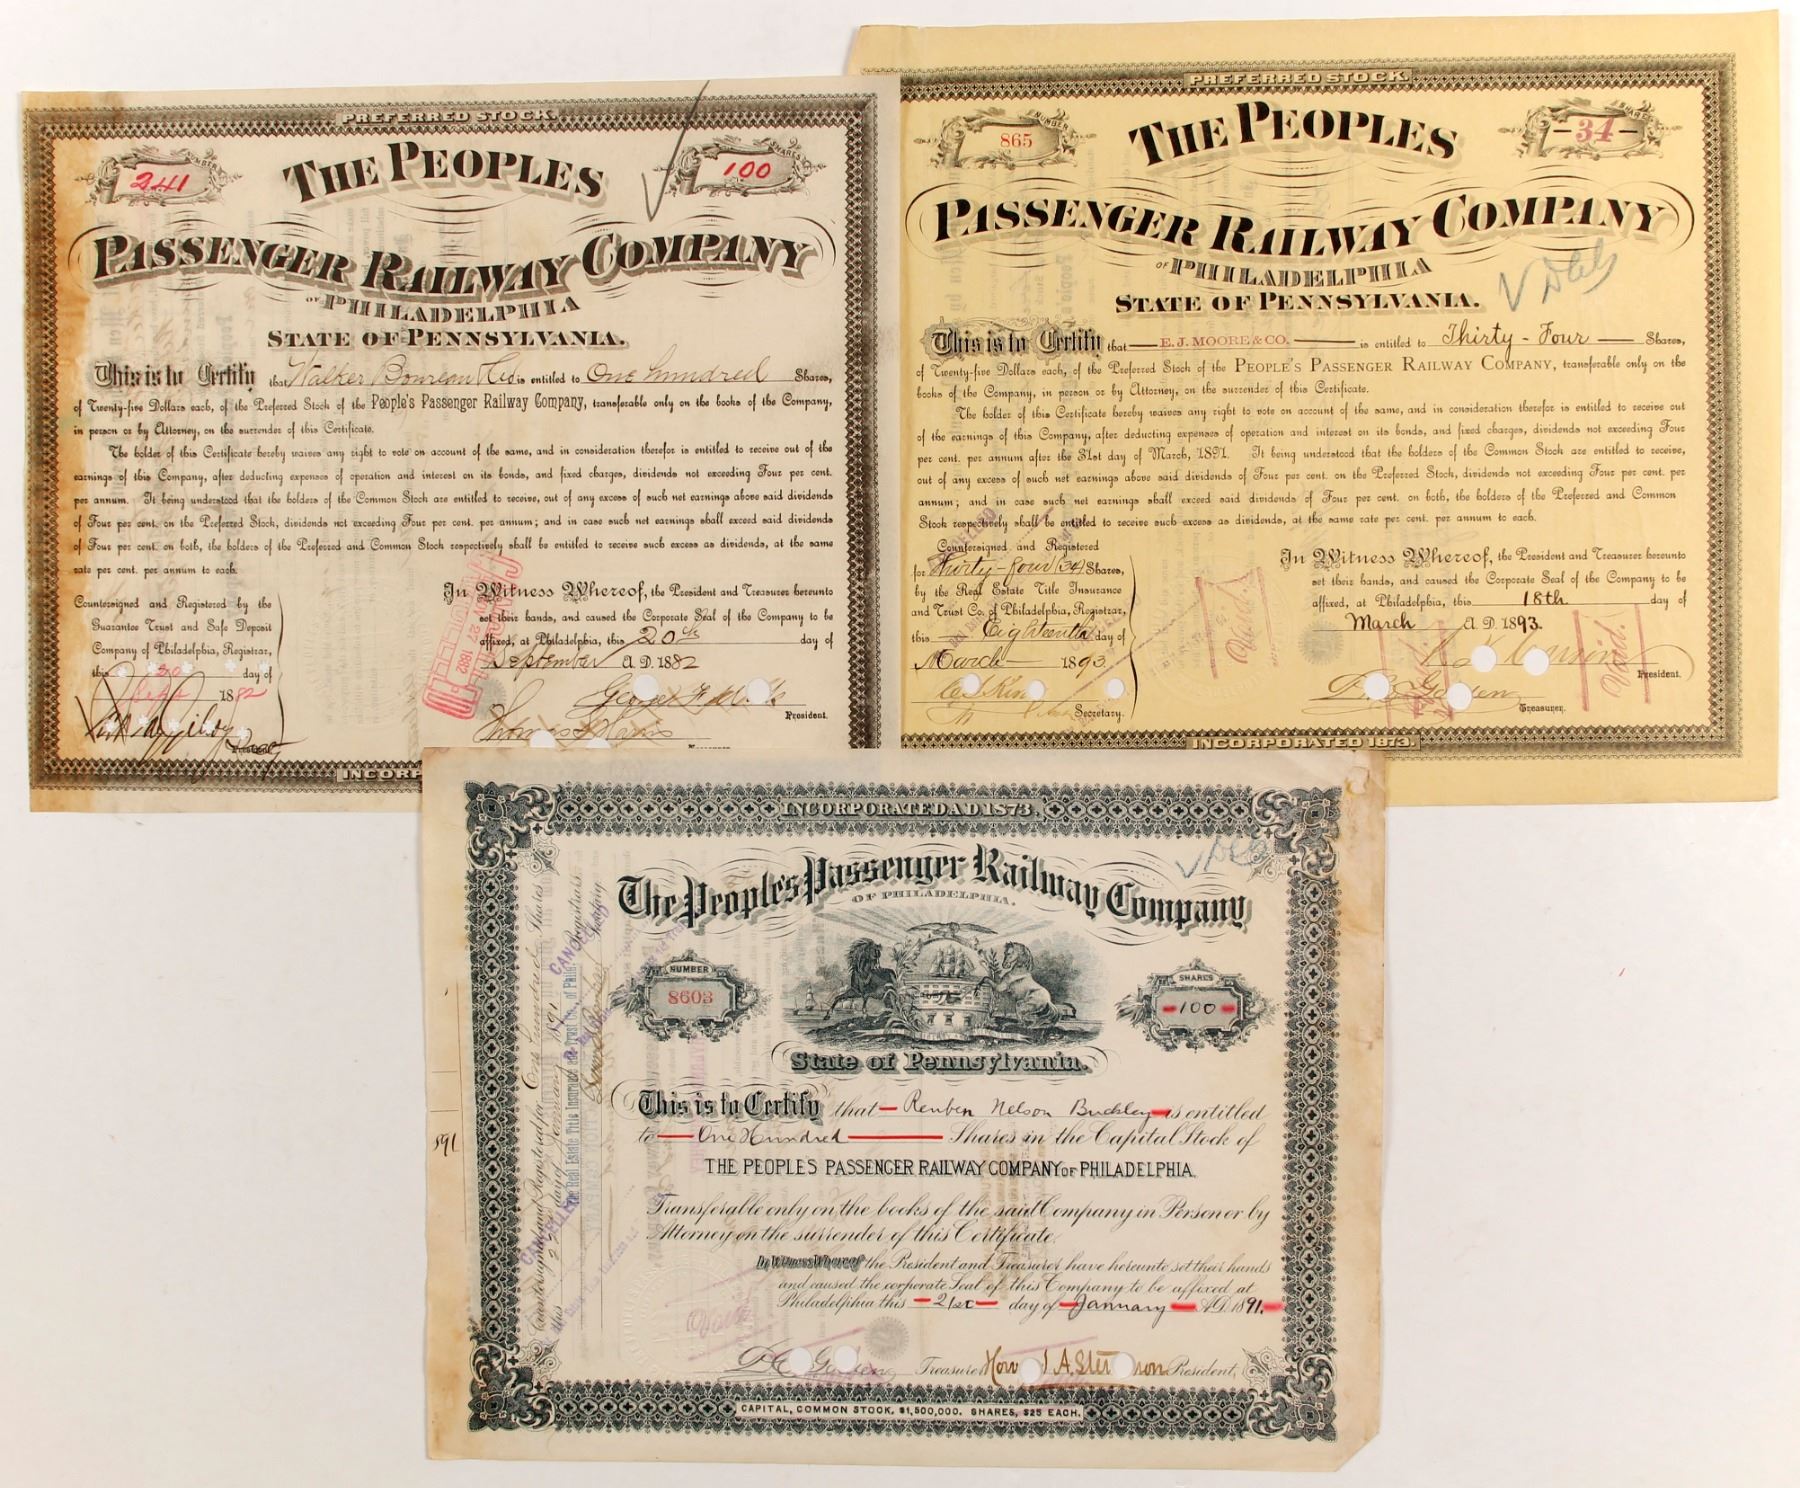 PREFERRED STOCK.
NUMBER
241
SHARES
100
THE PEOPLES
PASSENGER RAILWAY COMPANY
OF PHILADELPHIA
STATE OF PENNSYLVANIA.
This is to Certify that Walker Boureau is entitled to One hundred Shares,
of Twenty-five Dollars each, of the Preferred Stock of the People's Passenger Railway Company, transferable only on the books of the Company,
in person or by Attorney, on the surrender of this Certificate.
The holder of this Certificate hereby waives any right to vote on account of the same, and in consideration therefor is entitled to receive out of the
earnings of this Company, after deducting expenses of operation and interest on its bonds, and fixed charges, dividends not exceeding Four per cent.
per annum. It being understood that the holders of the Common Stock are entitled to receive, out of any excess of such net earnings above said dividends
of Four per cent. on the Preferred Stock, dividends not exceeding Four per cent. per annum; and in case such net earnings shall exceed said dividends
of Four per cent. on both, the holders of the Preferred and Common Stock respectively shall be entitled to receive such excess as dividends, at the same
rate per cent. per annum to each.
Countersigned and Registered by the
Guarantee Trust and Safe Deposit
Company of Philadelphia, Registrar,
this 20 day of
Sept 1882
In Witness Whereof, the President and Treasurer hereunto
set their hands, and caused the Corporate Seal of the Company to be
affixed, at Philadelphia, this 20th day of
September A.D. 1882
NOV 27 1882
President.
Thomas S Harris
INCORP
PREFERRED STOCK.
NUMBER
865
SHARES
-34-
THE PEOPLES
PASSENGER RAILWAY COMPANY
OF PHILADELPHIA
STATE OF PENNSYLVANIA.
This is to Certify that E. J. MOORE & CO. is entitled to Thirty-Four Shares,
of Twenty-five Dollars each, of the Preferred Stock of the PEOPLE'S PASSENGER RAILWAY COMPANY, transferable only on the
books of the Company, in person or by Attorney, on the surrender of this Certificate.
The holder of this Certificate hereby waives any right to vote on account of the same, and in consideration therefor is entitled to receive out
of the earnings of this Company, after deducting expenses of operation and interest on its bonds, and fixed charges, dividends not exceeding Four
per cent. per annum after the 31st day of March, 1891. It being understood that the holders of the Common Stock are entitled to receive,
out of any excess of such net earnings above said dividends of Four per cent. on the Preferred Stock, dividends not exceeding Four per cent. per
annum; and in case such net earnings shall exceed said dividends of Four per cent. on both, the holders of the Preferred and Common
Stock respectively shall be entitled to receive such excess as dividends, at the same rate per cent. per annum to each.
Countersigned and Registered
for Thirty-four (34) Shares,
by the Real Estate Title Insurance
and Trust Co. of Philadelphia, Registrar,
this Eighteenth day of
March 1893.
Secretary.
In Witness Whereof, the President and Treasurer hereunto
set their hands, and caused the Corporate Seal of the Company to be
affixed, at Philadelphia, this 18th day of
March A.D. 1893.
President.
Treasurer.
Void
Void
INCORPORATED 1873.
INCORPORATED A.D. 1873.
The People's Passenger Railway Company
OF PHILADELPHIA.
NUMBER
8603
SHARES
-100-
State of Pennsylvania.
This is to Certify that Reuben Nelson Buckley is entitled
to One Hundred Shares in the Capital Stock of
THE PEOPLE'S PASSENGER RAILWAY COMPANY OF PHILADELPHIA.
Transferable only on the books of the said Company in Person or by
Attorney on the surrender of this Certificate.
In Witness Whereof the President and Treasurer have hereunto set their hands
and caused the corporate Seal of this Company to be affixed at
Philadelphia this 21st day of January A.D. 1891.
Treasurer
President.
Void
CAPITAL, COMMON STOCK, $1,500,000. SHARES, $25 EACH.
Countersigned and Registered for One Hundred Shares
this 22 day of January 1891
the Real Estate Title Insurance and Trust Co., of Phila. Registrars
CANCELLED
591